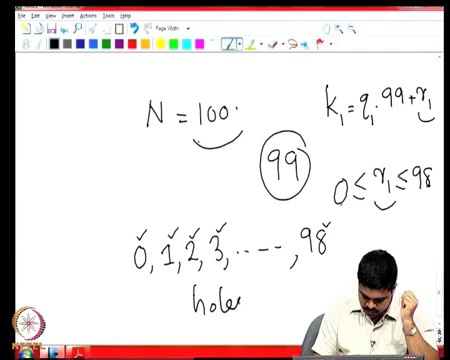 File Edit View Insert Actions Tools Help
Page Width
N = 100.
k₁ = q₁ · 99 + r₁
99
0 ≤ r₁ ≤ 98
0, 1, 2, 3, ..---, 98
holes